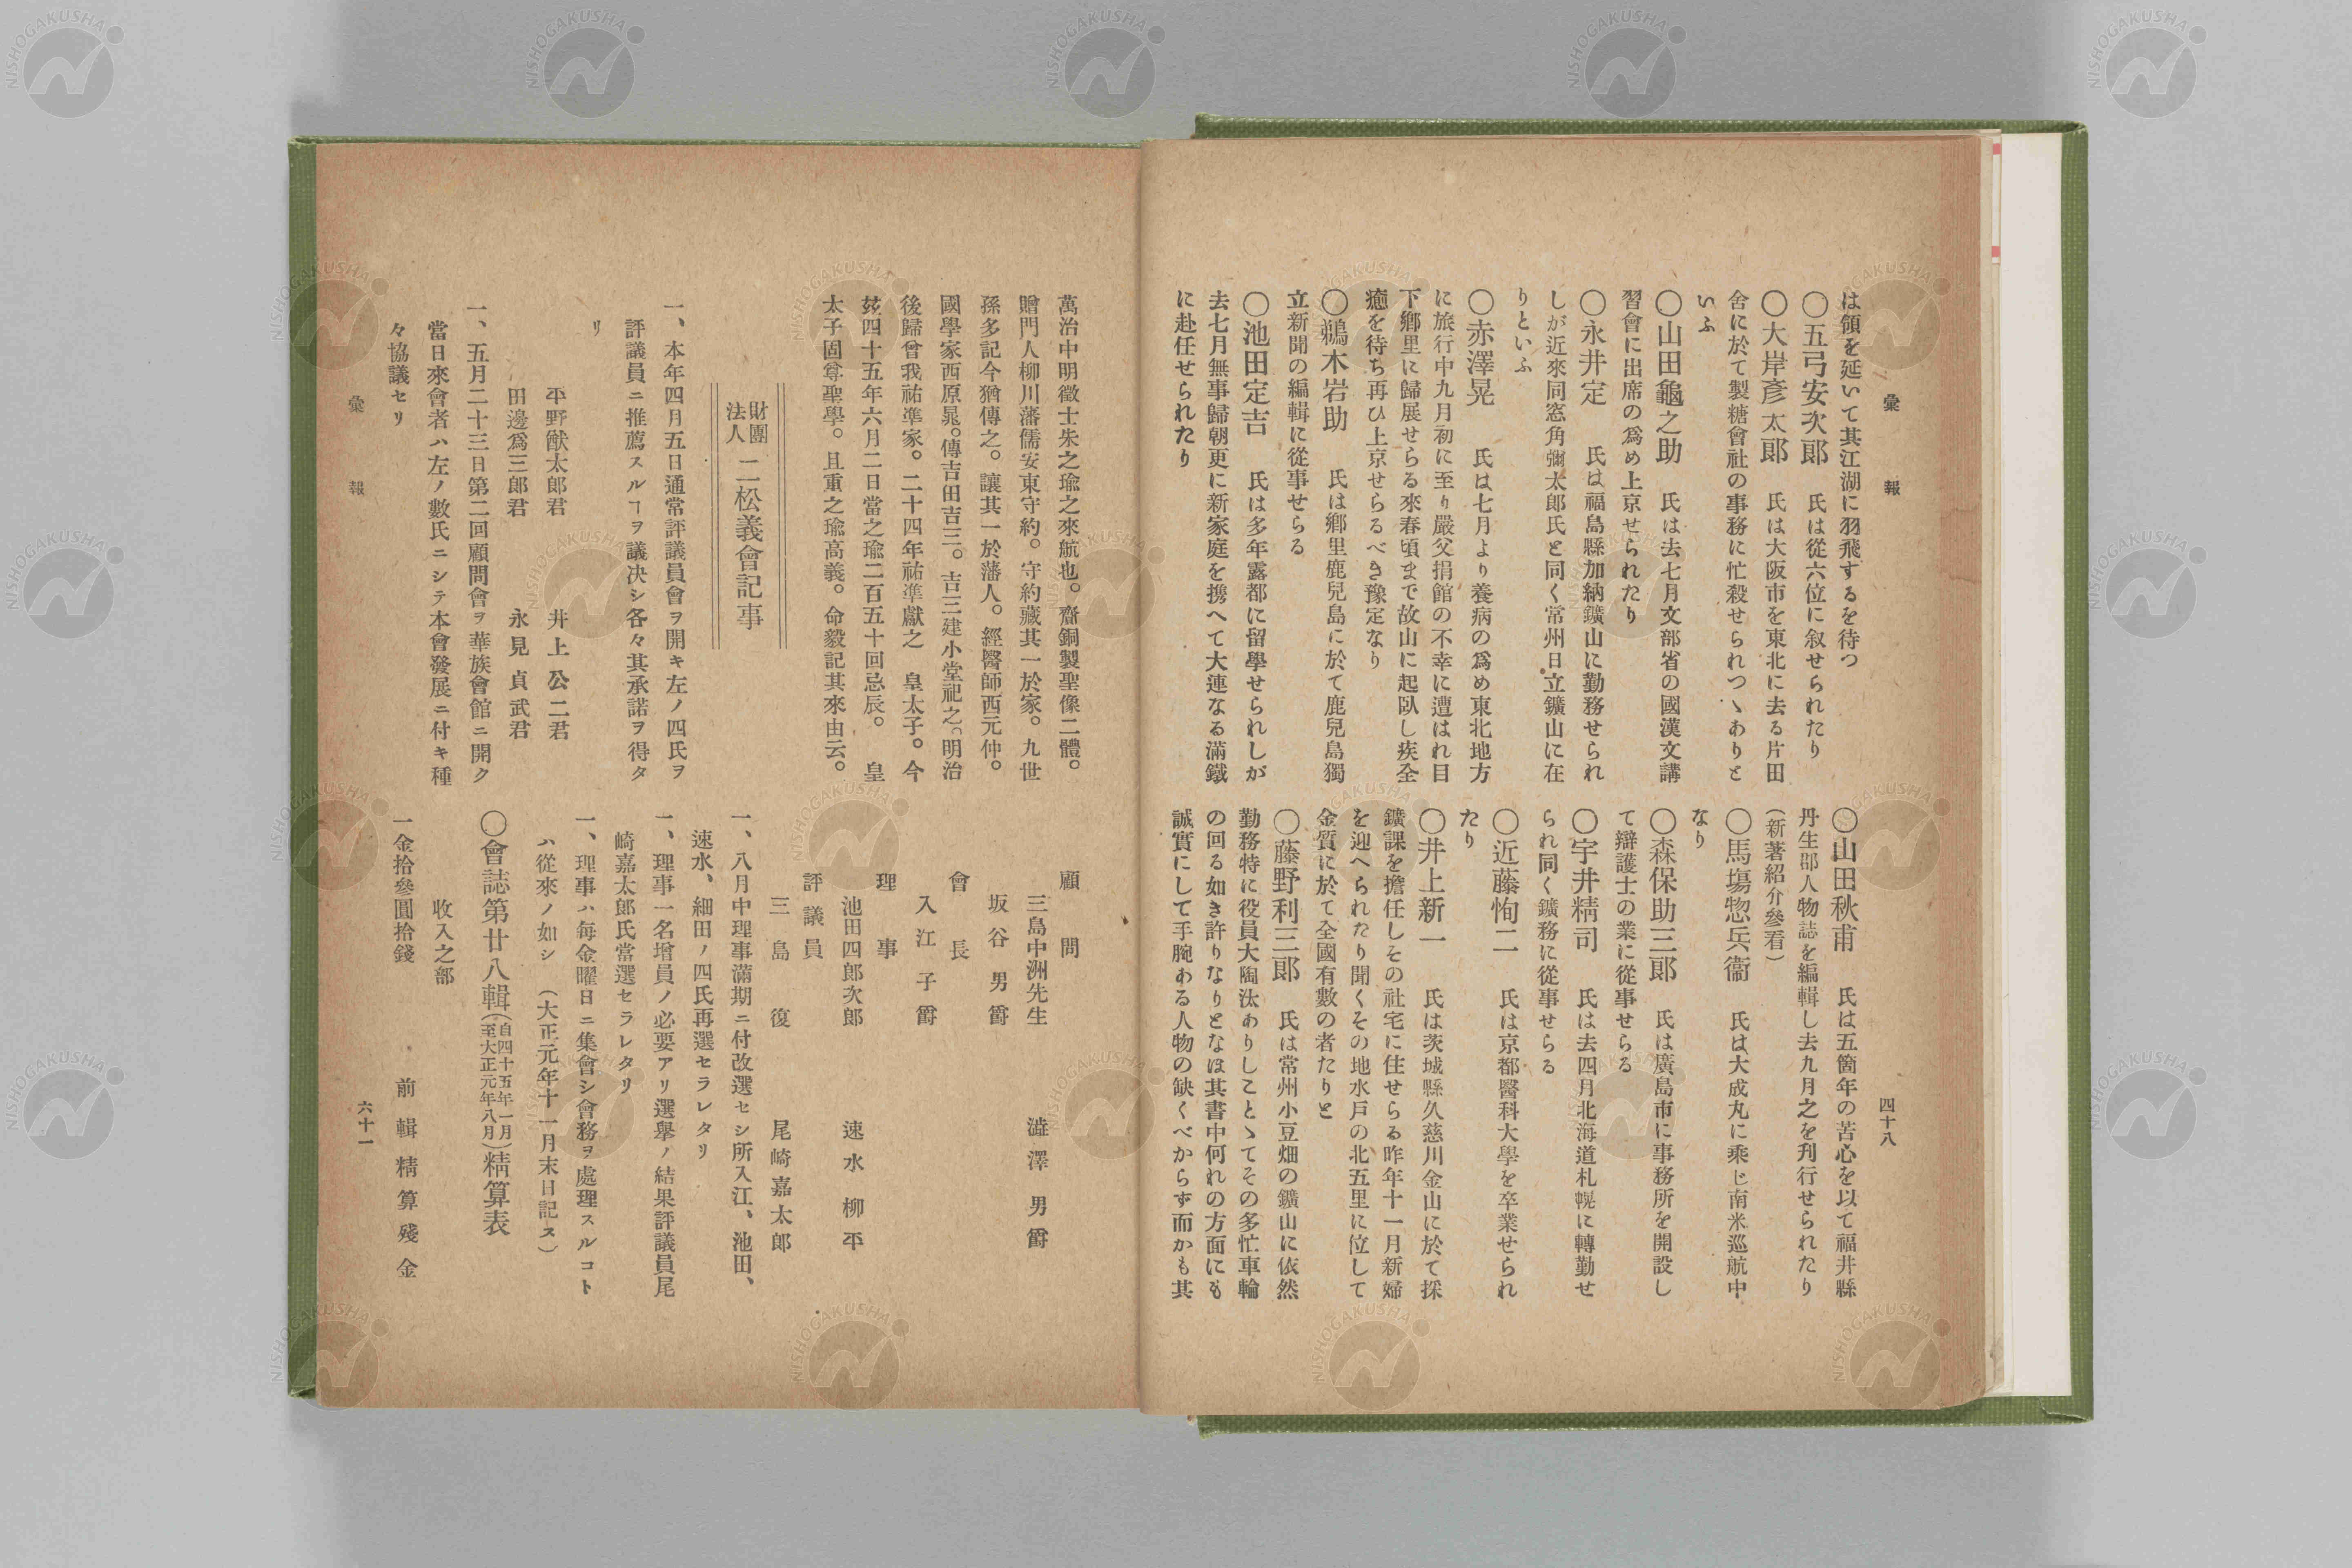 彙報
四十八
は領を延いて其江湖に羽飛するを待つ
〇五弓安次郎　氏は從六位に叙せられたり
〇大岸彥太郎　氏は大阪市を東北に去る片田
舍に於て製糖會社の事務に忙殺せられつゝありと
いふ
〇山田龜之助　氏は去七月文部省の國漢文講
習會に出席の爲め上京せられたり
〇永井定　氏は福島縣加納鑛山に勤務せられ
しが近來同窓角彌太郎氏と同く常州日立鑛山に在
りといふ
〇赤澤晃　氏は七月より養病の爲め東北地方
に旅行中九月初に至り嚴父捐館の不幸に遭はれ目
下鄕里に歸展せらる來春頃まで故山に起臥し疾全
癒を待ち再ひ上京せらるべき豫定なり
〇鵜木岩助　氏は鄕里鹿兒島に於て鹿兒島獨
立新聞の編輯に從事せらる
〇池田定吉　氏は多年露都に留學せられしが
去七月無事歸朝更に新家庭を携へて大連なる滿鐵
に赴任せられたり
〇山田秋甫　氏は五箇年の苦心を以て福井縣
丹生郡人物誌を編輯し去九月之を刋行せられたり
（新著紹介參看）
〇馬塲惣兵衞　氏は大成丸に乘じ南米巡航中
なり
〇森保助三郎　氏は廣島市に事務所を開設し
て辯護士の業に從事せらる
〇宇井精司　氏は去四月北海道札幌に轉勤せ
られ同く鑛務に從事せらる
〇近藤恂二　氏は京都醫科大學を卒業せられ
たり
〇井上新一　氏は茨城縣久慈川金山に於て採
鑛課を擔任しその社宅に住せらる昨年十一月新婦
を迎へられたり聞くその地水戸の北五里に位して
金質に於て全國有數の者たりと
〇藤野利三郎　氏は常州小豆畑の鑛山に依然
勤務特に役員大陶汰ありしことゝてその多忙車輪
の回る如き許りなりとなほ其書中何れの方面にも
誠實にして手腕ある人物の缺くべからず而かも其
萬治中明徵士朱之瑜之來航也。齎銅製聖像二體。
贈門人柳川藩儒安東守約。守約藏其一於家。九世
孫多記今猶傳之。讓其一於藩人。經醫師西元仲。
國學家西原晁。傳吉田吉三。吉三建小堂祀之。明治
後歸曾我祐準家。二十四年祐準獻之　皇太子。今
玆四十五年六月二日當之瑜二百五十回忌辰。　皇
太子固尊聖學。且重之瑜高義。命毅記其來由云。
財團法人　二松義會記事
一、本年四月五日通常評議員會ヲ開キ左ノ四氏ヲ
評議員ニ推薦スルヿヲ議决シ各々其承諾ヲ得タ
リ
平野猷太郎君　井上公二君
田邊爲三郎君　永見貞武君
一、五月二十三日第二回顧問會ヲ華族會館ニ開ク
當日來會者ハ左ノ數氏ニシテ本會發展ニ付キ種
々協議セリ
顧問
三島中洲先生　澁澤男爵
坂谷男爵
會長
入江子爵
理事
池田四郎次郎　速水柳平
評議員
三島復　尾崎嘉太郎
一、八月中理事滿期ニ付改選セシ所入江、池田、
速水、細田ノ四氏再選セラレタリ
一、理事一名增員ノ必要アリ選擧ノ結果評議員尾
崎嘉太郎氏當選セラレタリ
一、理事ハ每金曜日ニ集會シ會務ヲ處理スルコト
ハ從來ノ如シ　（大正元年十一月末日記ス）
〇會誌第廿八輯（自四十五年一月至大正元年八月）精算表
收入之部
一金拾參圓拾錢　前輯精算殘金
彙報
六十一